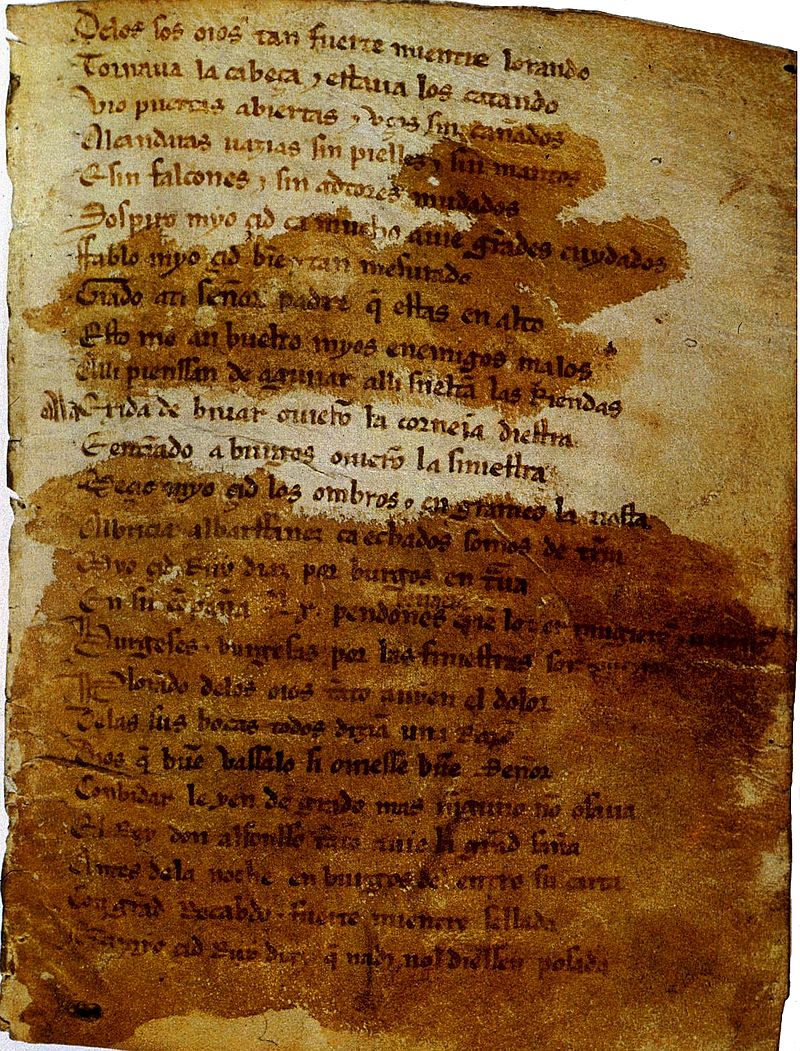 Delos sos oios tan fuerte mientre lorando
Tornaua la cabeça ⁊ estaua los catando
Vio puertas abiertas ⁊ vços sin cañados
Alcandaras uazias sin pielles ⁊ sin mantos
E sin falcones ⁊ sin adtores mudados
Sospiro myo çid ca mucho auie grãdes cuydados
Ffablo myo çid biẽ ⁊ tan mesurado
Grado ati señor padre q̃ estas en alto
Esto me an buelto myos enemigos malos
Alli pienssan de aguiiar alli sueltã las Riendas
Exida de biuar ouierõ la corneia diestra
E entrãdo a burgos ouierõ la siniestra
Meçio myo çid los ombros ⁊ en grameo la tiesta
Albricia albarffanez ca echados somos de tr̃ra
Myo çid Ruy diaz por burgos en traua
En su cõpaña Lx pendones
Burgeses ⁊ burgesas por las finiestras son
Plorãdo delos oios tãto auyen el dolor
Delas sus bocas todos dizíã una Razõ
Dios q̃ buẽ vassalo si ouiesse buẽ Señor
Conbidar le yen de grado mas nĩguno nõ osaua
El Rey don alfonsso tãto auie la grãd saña
Antes dela noche en burgos del entro su carta
Con grãd Recabdo ⁊ fuerte mientre sellada
çid Ruy diaz q̃ nadi nol diessen posada